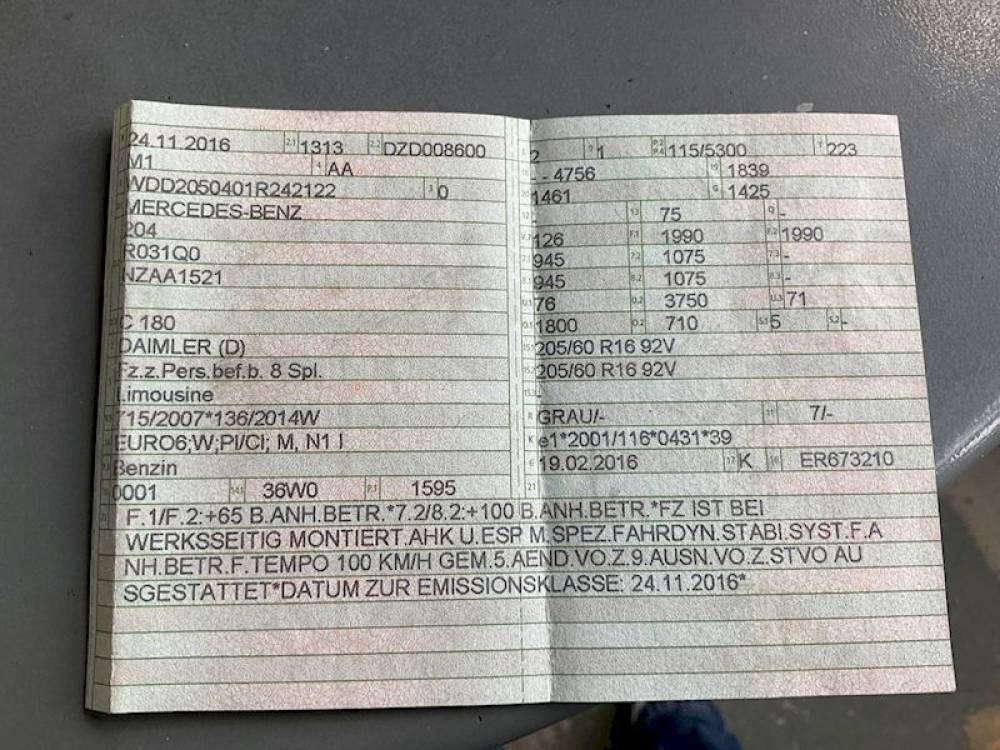 24.11.2016 2.1 1313 2.2 DZD008600
M1 4 AA
WDD2050401R242122 3 0
MERCEDES-BENZ
204
R031Q0
NZAA1521
C 180
DAIMLER (D)
Fz.z.Pers.bef.b. 8 Spl.
Limousine
715/2007*136/2014W
EURO6;W;PI/CI; M, N1 I
Benzin
0001 14.1 36W0 P.1 1595
2 9 1 P.2 P.4 115/5300 T 223
- 4756 19 1839
1461 G 1425
13 75 Q -
126 F.1 1990 F.2 1990
945 7.2 1075 7.3 -
945 8.2 1075 8.3 -
76 U.2 3750 U.3 71
1800 O.2 710 S.1 5 S.2 -
205/60 R16 92V
205/60 R16 92V
-
R GRAU/- 11 7/-
K e1*2001/116*0431*39
6 19.02.2016 17 K 16 ER673210
21
F.1/F.2:+65 B.ANH.BETR.*7.2/8.2:+100 B.ANH.BETR.*FZ IST BEI
WERKSSEITIG MONTIERT.AHK U.ESP M.SPEZ.FAHRDYN.STABI.SYST.F.A
NH.BETR.F.TEMPO 100 KM/H GEM.5.AEND.VO.Z.9.AUSN.VO.Z.STVO AU
SGESTATTET*DATUM ZUR EMISSIONSKLASSE: 24.11.2016*